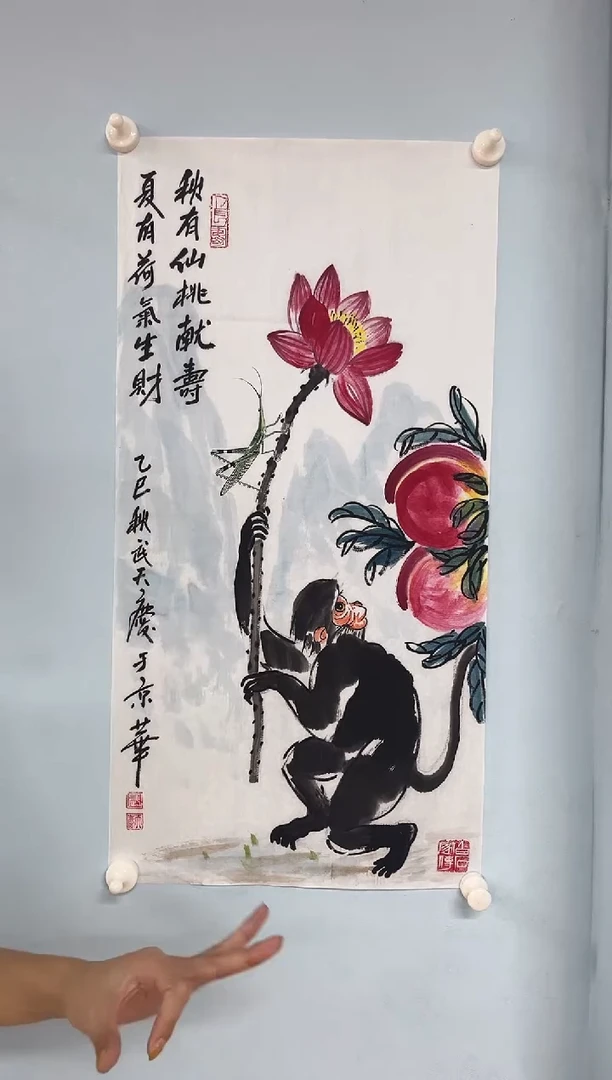 秋有仙桃献壽
夏有荷氣生財
乙巳秋武天慶于京華